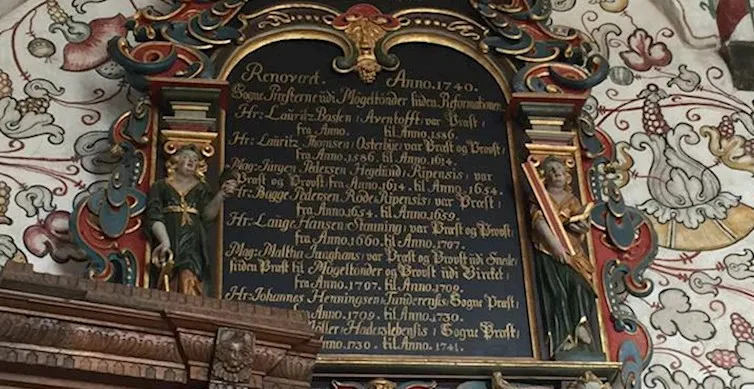 Renovart. Anno. 1740.
Sogne Præsterne udi Mögeltönder siden Reformationen.
Hr: Lauritz Bassen, Aventofft, var Præst,
fra Anno. til Anno. 1586.
Hr: Lauritz Thomsen, Osterbÿe, var Præst og Provst,
fra Anno. 1586. til Anno. 1614.
Mag: Jürgen Pedersen Hegelund, Ripensis, var
Præst og Provst, fra Anno. 1614. til Anno. 1654.
Hr: Bagge Pedersen Rode, Ripensis, var Præst,
fra Anno. 1654. til Anno. 1659.
Hr: Lauge Hansen, Stenning, var Præst og Provst,
fra Anno. 1660. til Anno. 1707.
Mag: Maltha var Præst og Provst udi
siden Præst til Mögeltönder og Provst udi
fra Anno. 1707. til Anno. 1709.
Hr: Johannes Henningsen, Tunderensis, Sogne Præst,
Anno. 1709. til Anno. 1730.
Möller, Haderslebensis, Sogne Præst,
Anno. 1730. til Anno. 1741.